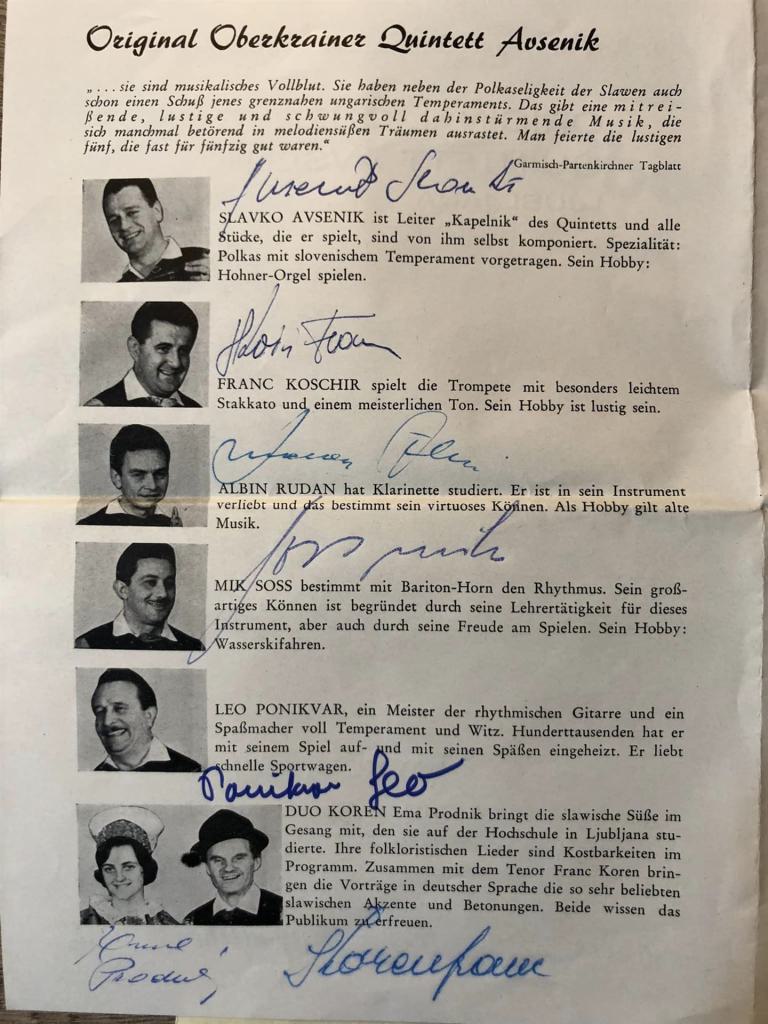 Original Oberkrainer Quintett Avsenik
„... sie sind musikalisches Vollblut. Sie haben neben der Polkaseligkeit der Slawen auch
schon einen Schuß jenes grenznahen ungarischen Temperaments. Das gibt eine mitrei-
ßende, lustige und schwungvoll dahinstürmende Musik, die
sich manchmal betörend in melodiensüßen Träumen ausrastet. Man feierte die lustigen
fünf, die fast für fünfzig gut waren.“
Garmisch-Partenkirchner Tagblatt
SLAVKO AVSENIK ist Leiter „Kapelnik“ des Quintetts und alle
Stücke, die er spielt, sind von ihm selbst komponiert. Spezialität:
Polkas mit slovenischem Temperament vorgetragen. Sein Hobby:
Hohner-Orgel spielen.
FRANC KOSCHIR spielt die Trompete mit besonders leichtem
Stakkato und einem meisterlichen Ton. Sein Hobby ist lustig sein.
ALBIN RUDAN hat Klarinette studiert. Er ist in sein Instrument
verliebt und das bestimmt sein virtuoses Können. Als Hobby gilt alte
Musik.
MIK SOSS bestimmt mit Bariton-Horn den Rhythmus. Sein groß-
artiges Können ist begründet durch seine Lehrertätigkeit für dieses
Instrument, aber auch durch seine Freude am Spielen. Sein Hobby:
Wasserskifahren.
LEO PONIKVAR, ein Meister der rhythmischen Gitarre und ein
Spaßmacher voll Temperament und Witz. Hunderttausenden hat er
mit seinem Spiel auf- und mit seinen Späßen eingeheizt. Er liebt
schnelle Sportwagen.
Ponikvar Leo
DUO KOREN Ema Prodnik bringt die slawische Süße im
Gesang mit, den sie auf der Hochschule in Ljubljana stu-
dierte. Ihre folkloristischen Lieder sind Kostbarkeiten im
Programm. Zusammen mit dem Tenor Franc Koren brin-
gen die Vorträge in deutscher Sprache die so sehr beliebten
slawischen Akzente und Betonungen. Beide wissen das
Publikum zu erfreuen.
Koren Franc